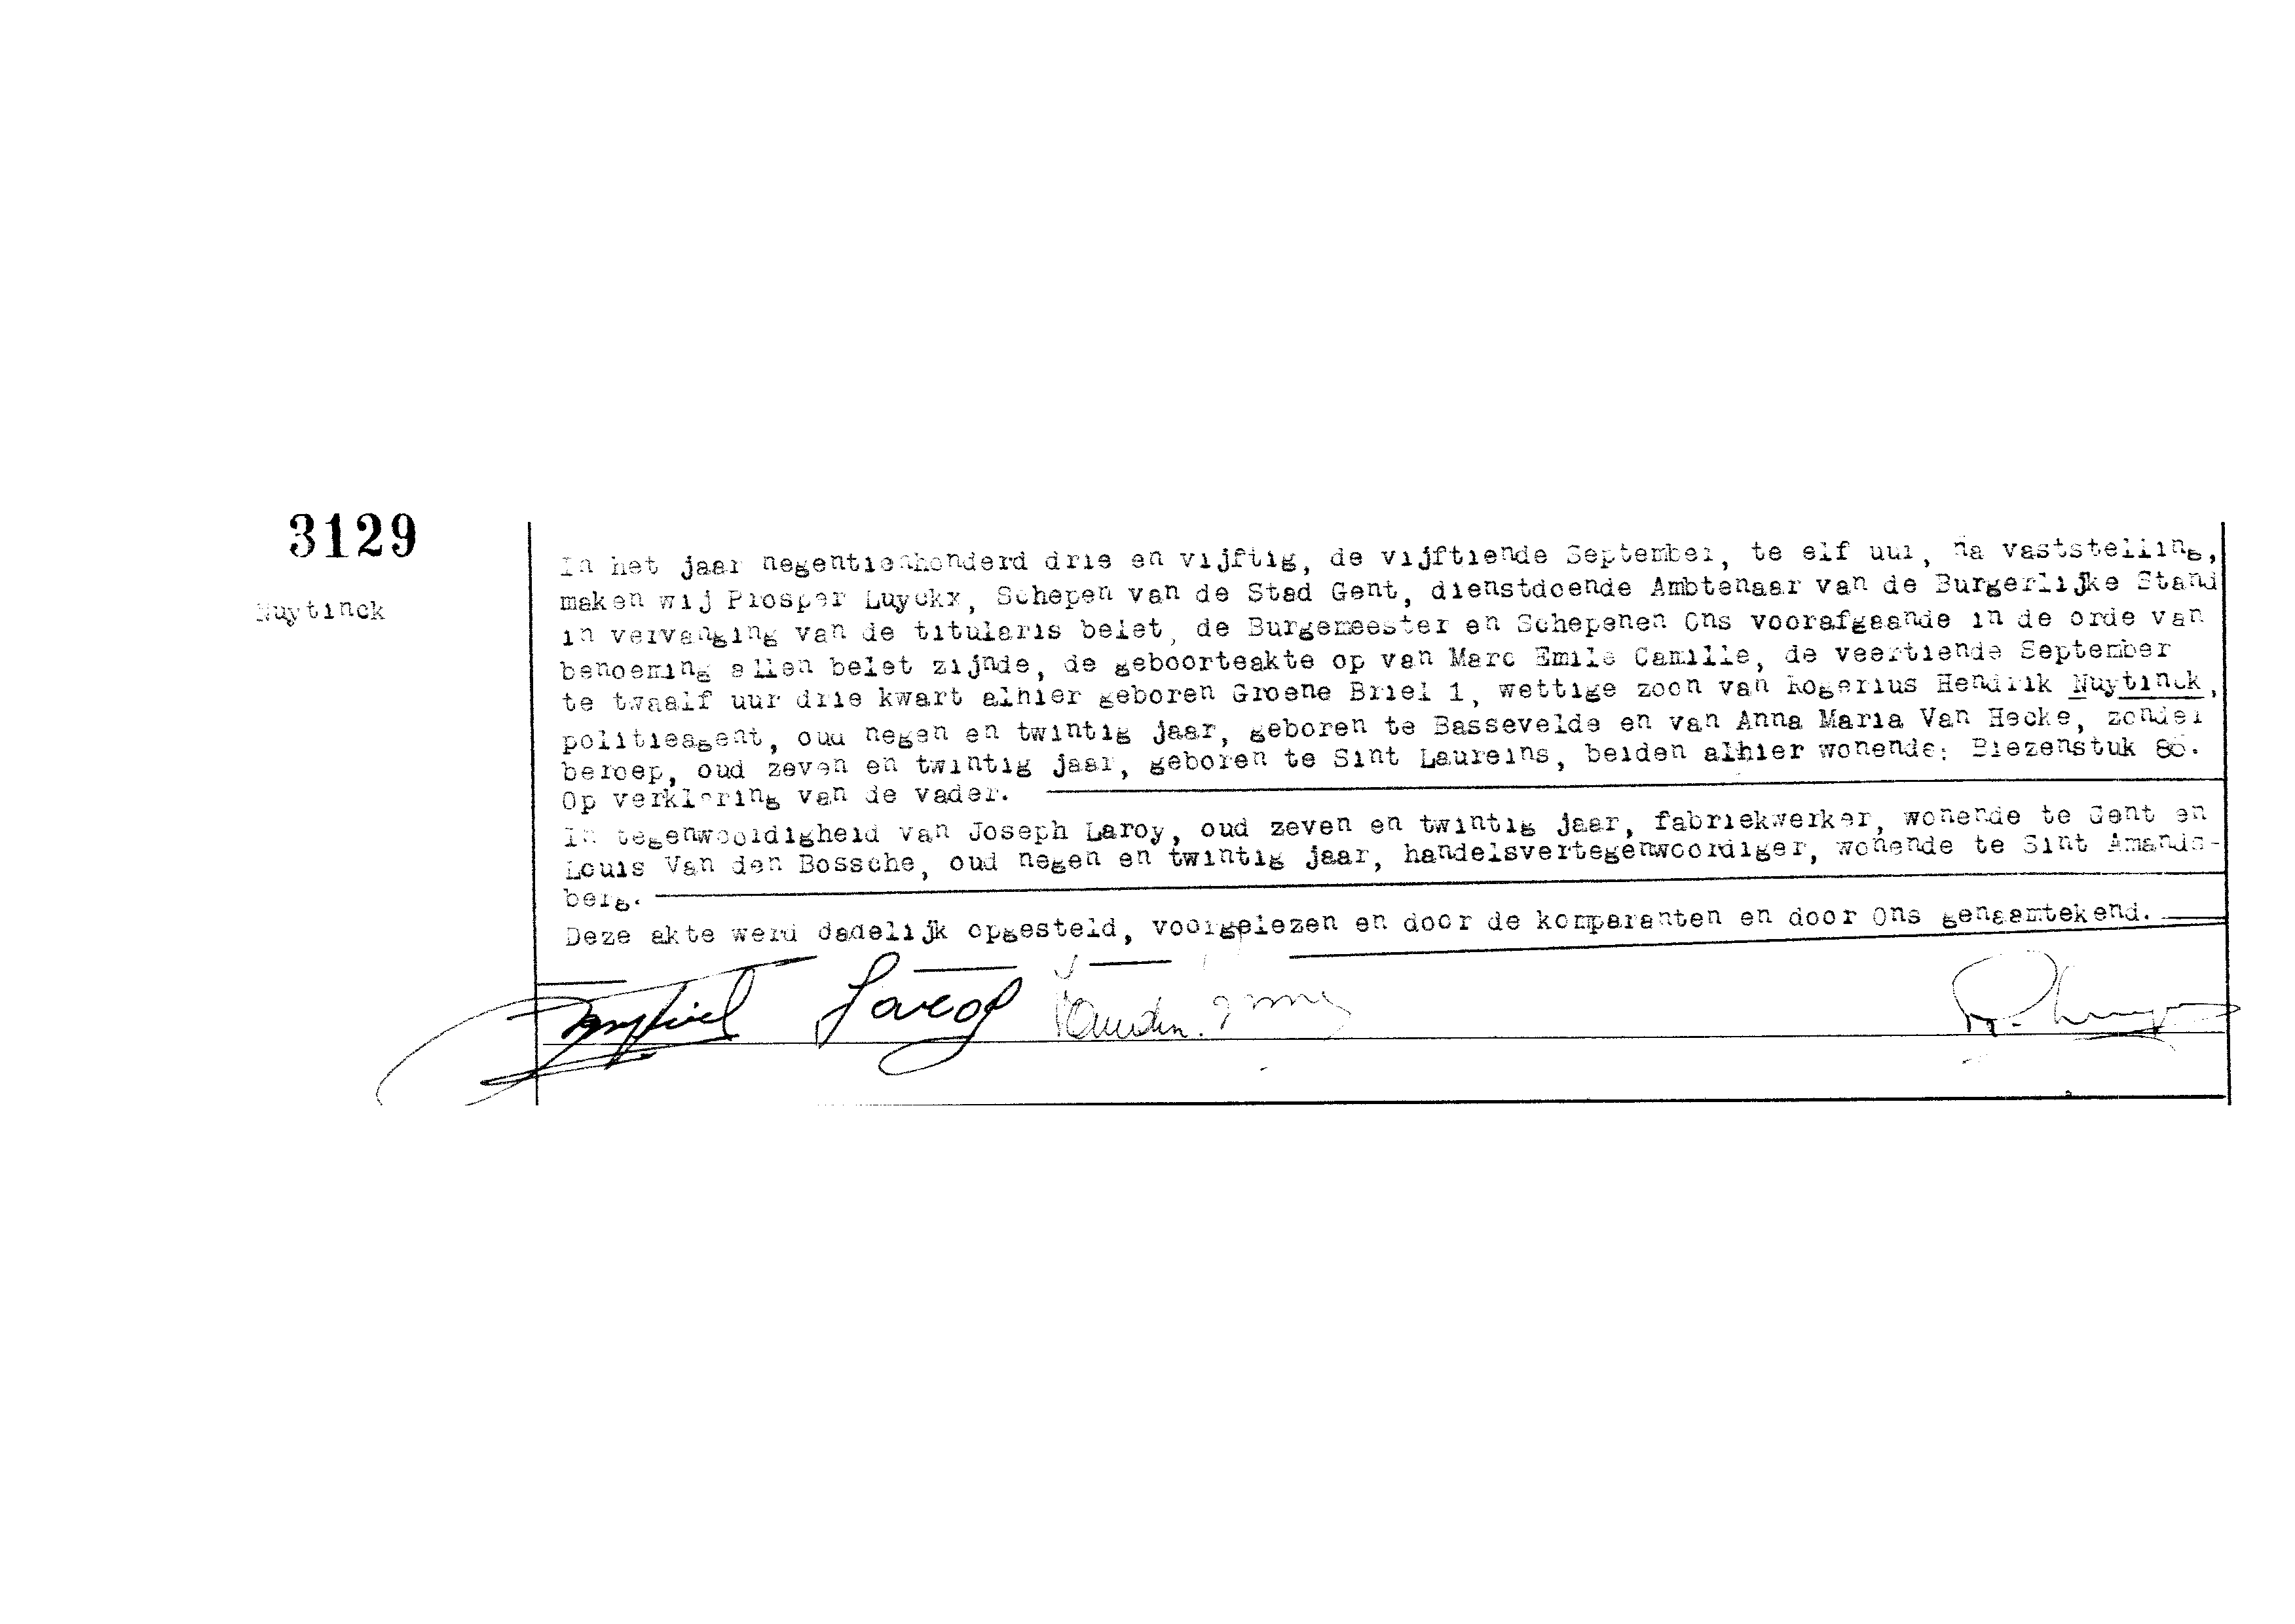 3129
Nuytinck
In het jaar negentienhonderd drie en vijftig, de vijftiende September, te elf uur, na vaststelling,
maken wij Prosper Luyckx, Schepen van de Stad Gent, dienstdoende Ambtenaar van de Burgerlijke Stand
in vervanging van de titularis belet, de Burgemeester en Schepenen Ons voorafgaande in de orde van
benoeming allen belet zijnde, de geboorteakte op van Marc Emile Camille, de veertiende September
te twaalf uur drie kwart alhier geboren Groene Briel 1, wettige zoon van Rogerius Hendrik Nuytinck,
politieagent, oud negen en twintig jaar, geboren te Bassevelde en van Anna Maria Van Hecke, zonder
beroep, oud zeven en twintig jaar, geboren te Sint Laureins, beiden alhier wonende: Biezenstuk
Op verklaring van de vader.
In tegenwoordigheid van Joseph Laroy, oud zeven en twintig jaar, fabriekwerker, wonende te Gent en
Louis Van den Bossche, oud negen en twintig jaar, handelsvertegenwoordiger, wonende te Sint Amands-
berg.
Deze akte werd dadelijk opgesteld, voorgelezen en door de komparanten en door Ons genaamtekend.
Laroy